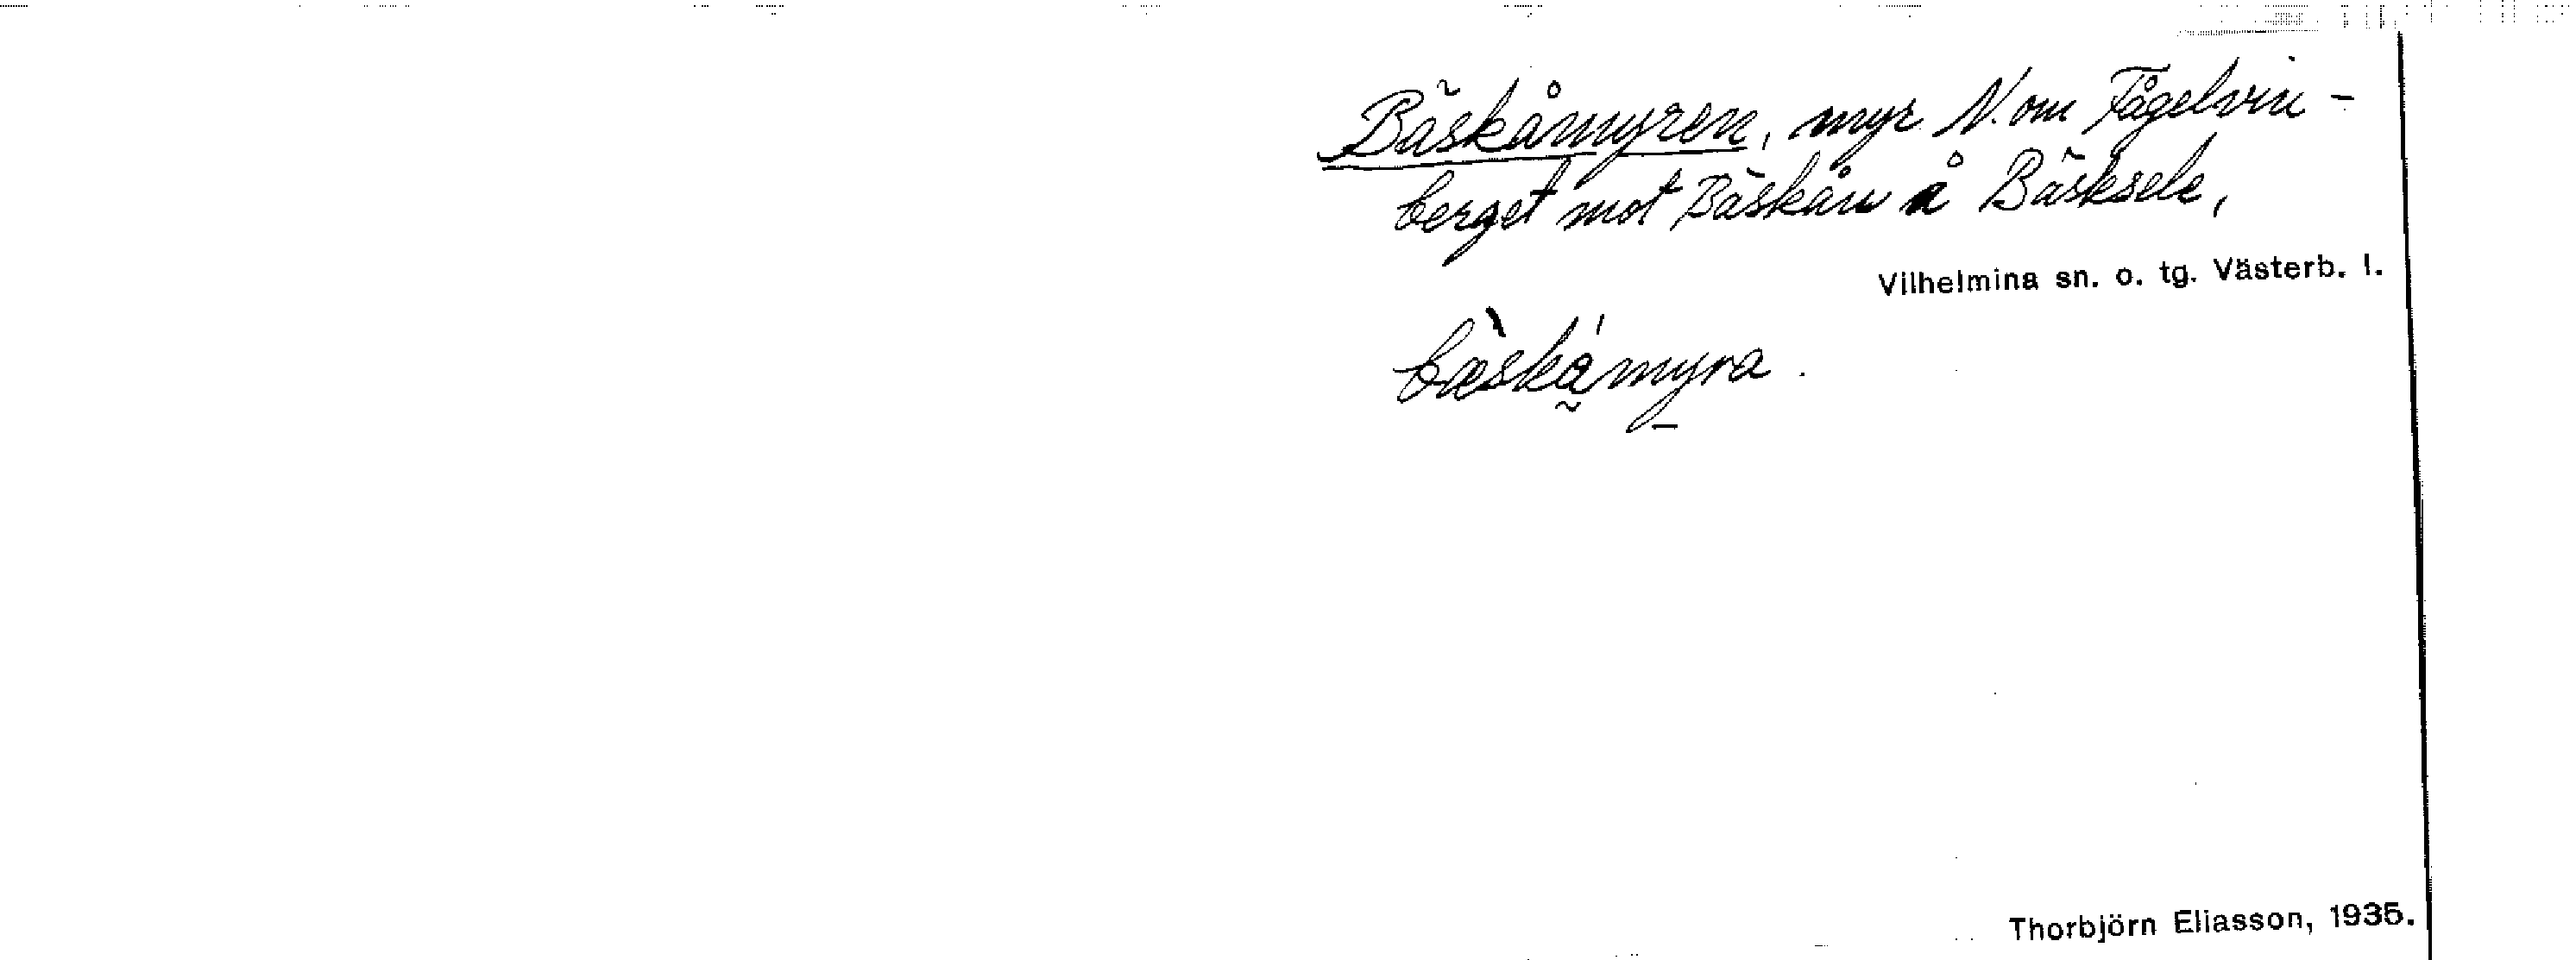 Bäskåmyren, myr N. om Fågelvin-
berget mot Bäskån å Bäsksele,
Vilhelmina sn. o. tg. Västerb. l.
bæ̀skǻmyra.
Thorbjörn Eliasson, 1935.